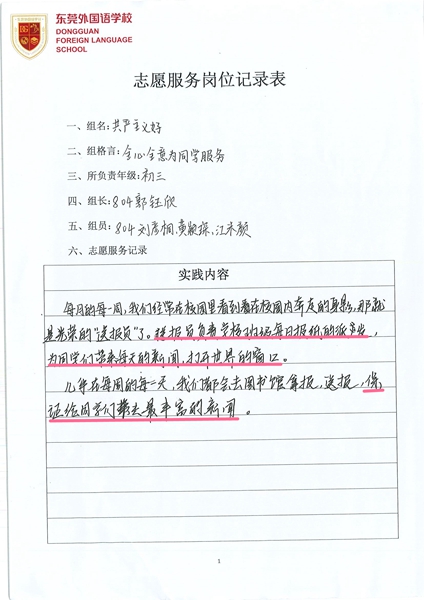 东莞外国语学校
DONGGUAN
FOREIGN LANGUAGE
SCHOOL
志愿服务岗位记录表
一、组名:共产主义好
二、组格言:全心全意为同学服务
三、所负责年级:初三
四、组长:804郭钰
五、组员:804刘彦桐,黄
六、志愿服务记录
实践内容
每月的每一周,我们经常在校园里看到着在校园内奔走的身影,那就
是光荣的“送报员”了。送报员负责学校班级每日报纸的派发,
为同学们带来每天的新闻,打开世界的窗口。
几乎在每周的每一天,我们都会去图书馆拿报,送报,保
证给同学们带去最丰富的新闻。
1